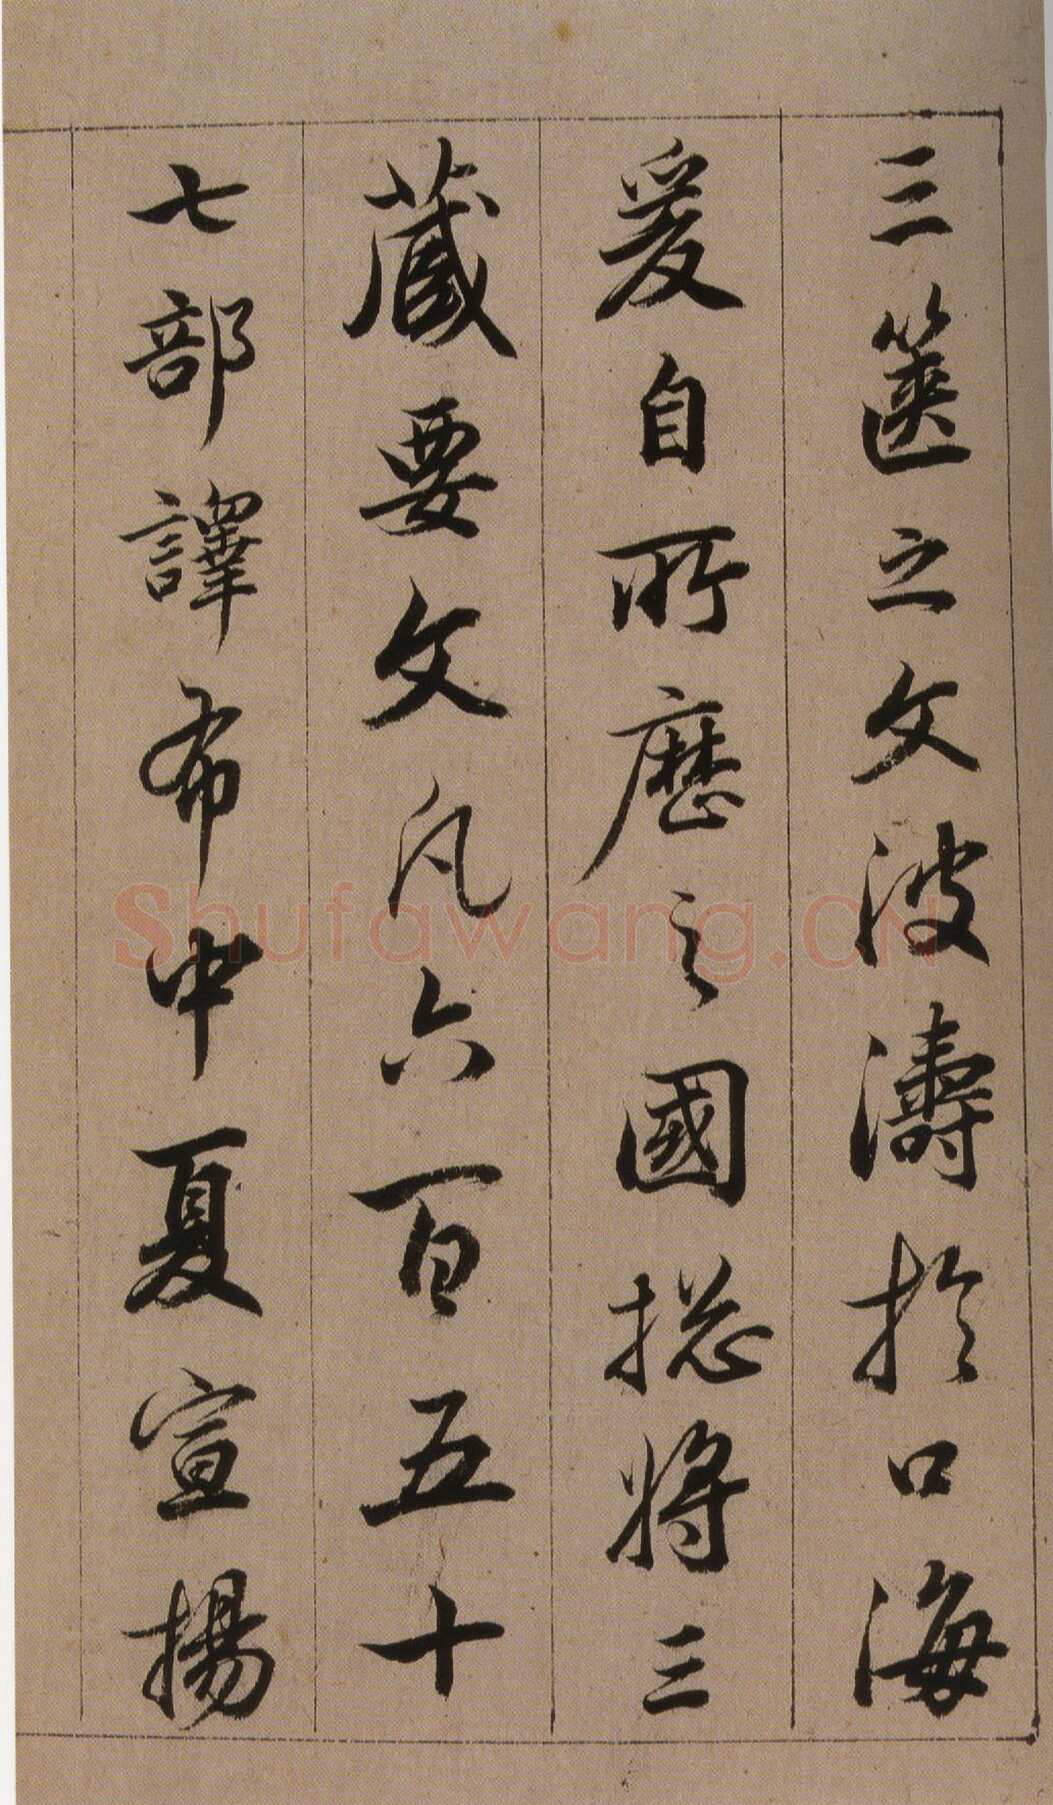 三篋之文波濤於口海
爰自所歷之國揔將三
藏要文凡六百五十
七部譯布中夏宣揚
Shufawang.CN